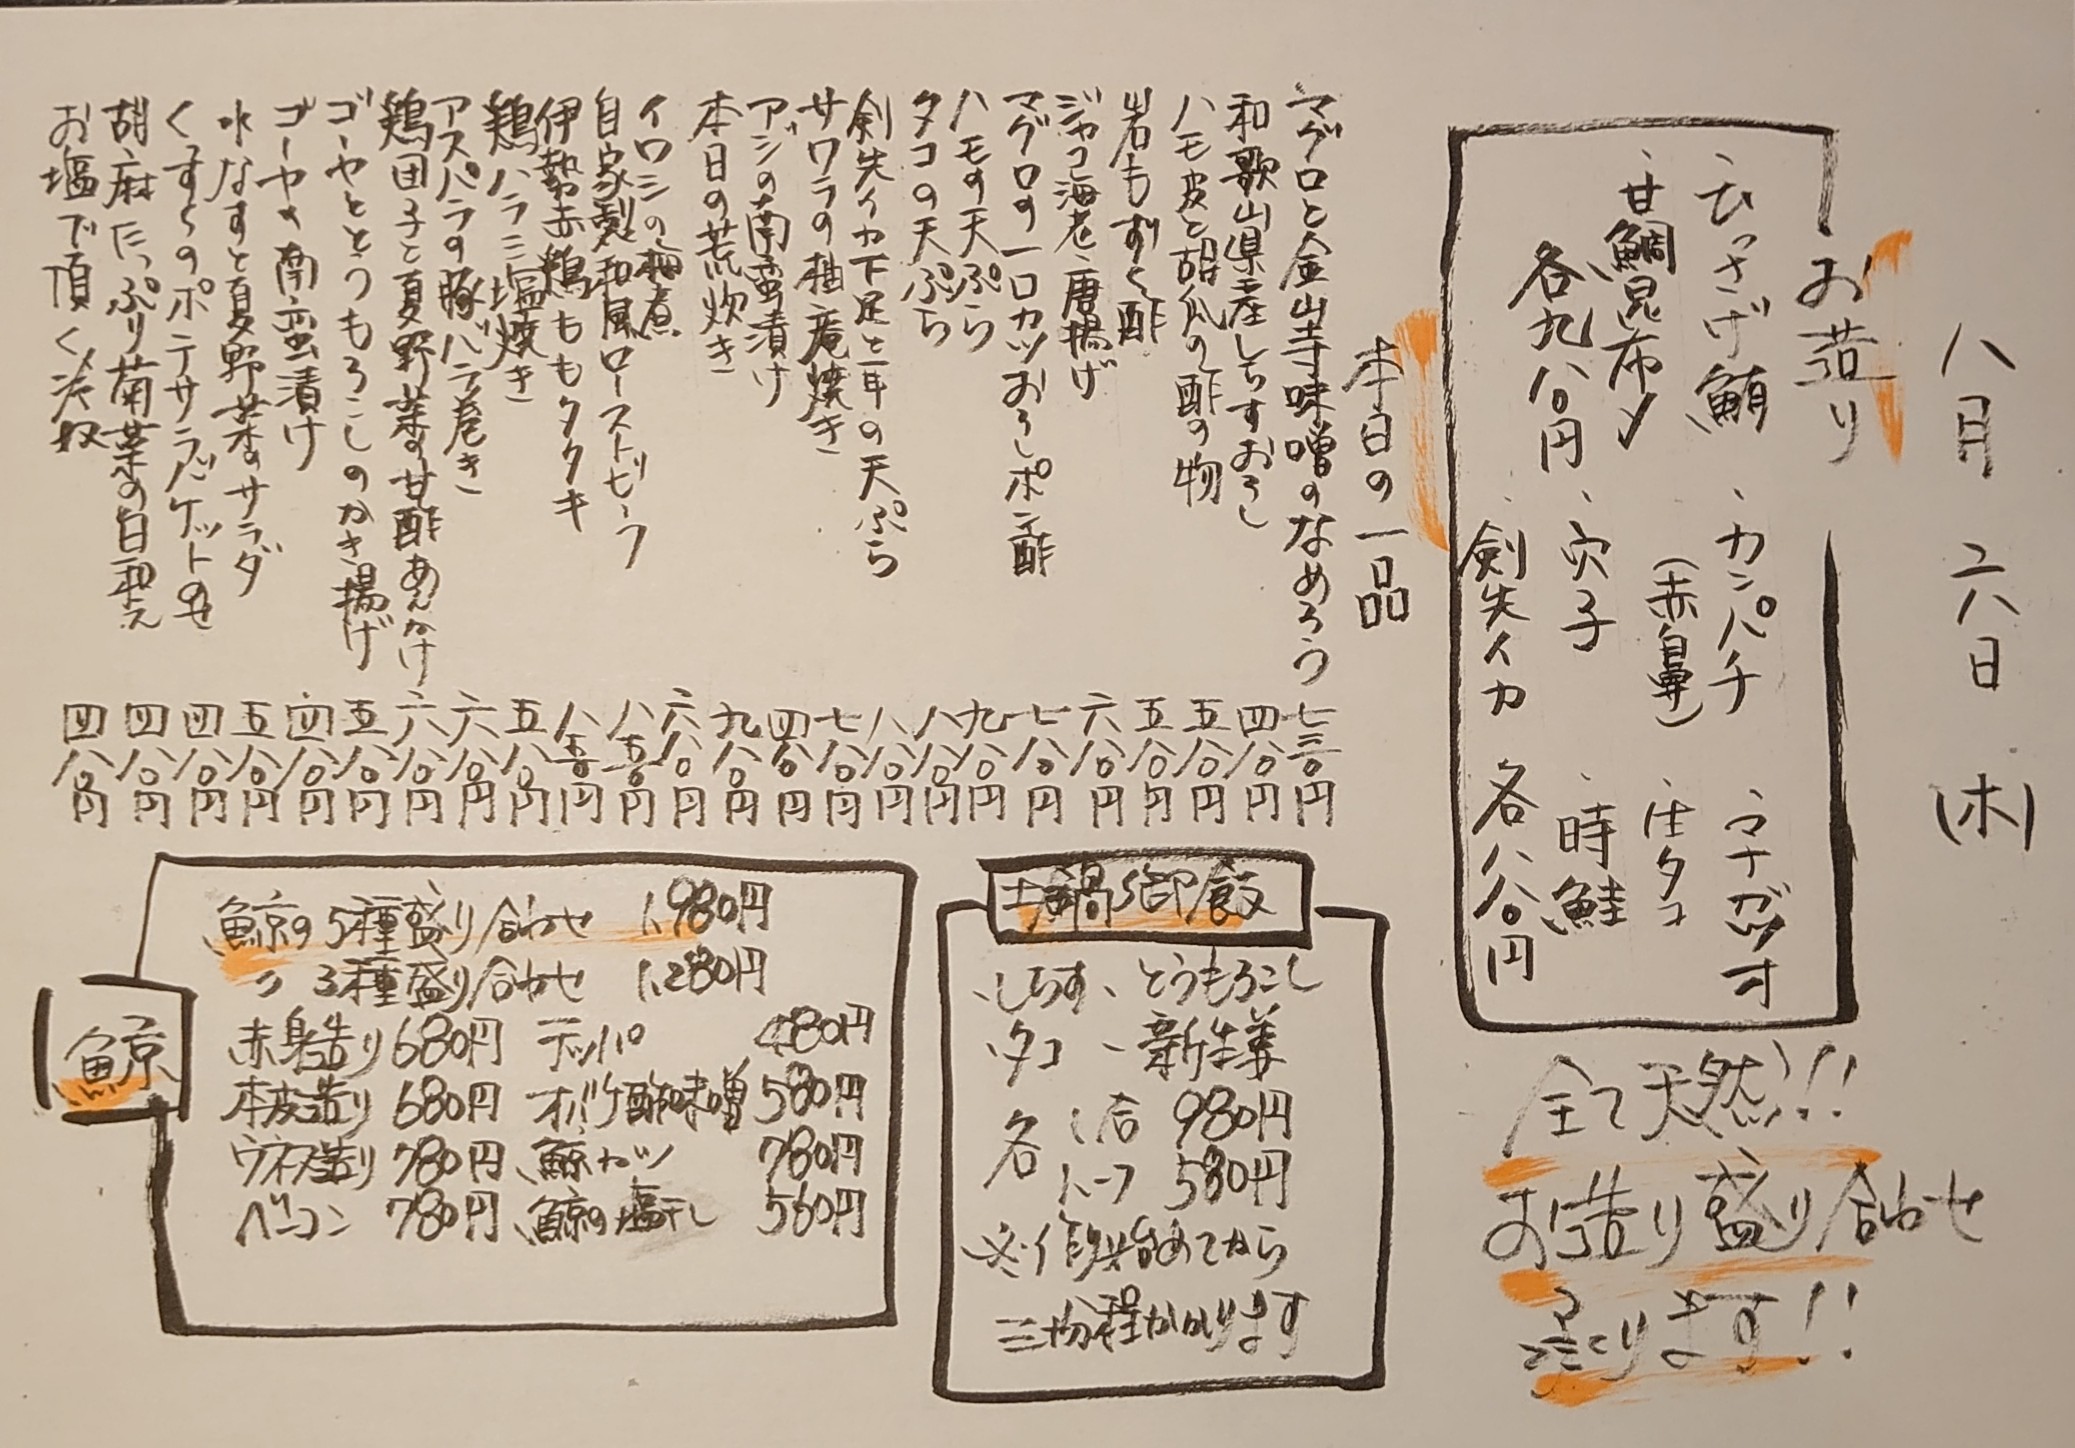 八月二八日(木)
お造り
、ひっさげ鮪
、カンパチ
、マナガツオ
、甘鯛昆布〆
(赤自鼻)
、活タコ
各九八〇円
、穴子
、時鮭
、剣先イカ
各八八〇円
全て天然!!
お造り盛り合わせ
承ります!!
本日の一品
マグロと金山寺味噌のなめろう 七三〇円
和歌山県産しらすおろし 四八〇円
ハモ皮と胡瓜の酢の物 五八〇円
岩もずく酢 五八〇円
ジャコ海老唐揚げ 六八〇円
マグロの一口カツおろしポン酢 七八〇円
ハモの天ぷら 九八〇円
タコの天ぷら 八八〇円
剣先イカ下足と二年の天ぷら 八八〇円
サワラの柚庵焼き 七八〇円
アジの南蛮漬け 四八〇円
本日の荒炊き 九八〇円
イワシの梅煮 六八〇円
自家製和風ローストビーフ 八五〇円
伊勢赤鶏ももタタキ 八五〇円
鶏ハラミ塩焼き 五八〇円
アスパラの豚バラ巻き 六八〇円
鶏団子と夏野菜の甘酢あんかけ 六八〇円
ゴーヤととうもろこしのかき揚げ 五八〇円
ゴーヤの南蛮漬け 四八〇円
水なすと夏野菜のサラダ 五八〇円
くずくずのポテサラバゲットのせ 四八〇円
胡麻たっぷり菊菜の白和え 四八〇円
お塩で頂く冷奴 四八〇円
土鍋御飯
、しらす 、とうもろこし
、タコ 、新生姜
各 1合 980円
ハーフ 580円
※作り始めてから
三十分程かかります
鯨
鯨の5種盛り合わせ 1,980円
〃 3種盛り合わせ 1,280円
赤身造り 680円 テッパ 480円
本皮造り 680円 オバケ酢味噌 580円
ウネス造り 780円 鯨カツ 780円
ベーコン 780円 鯨の塩干し 560円